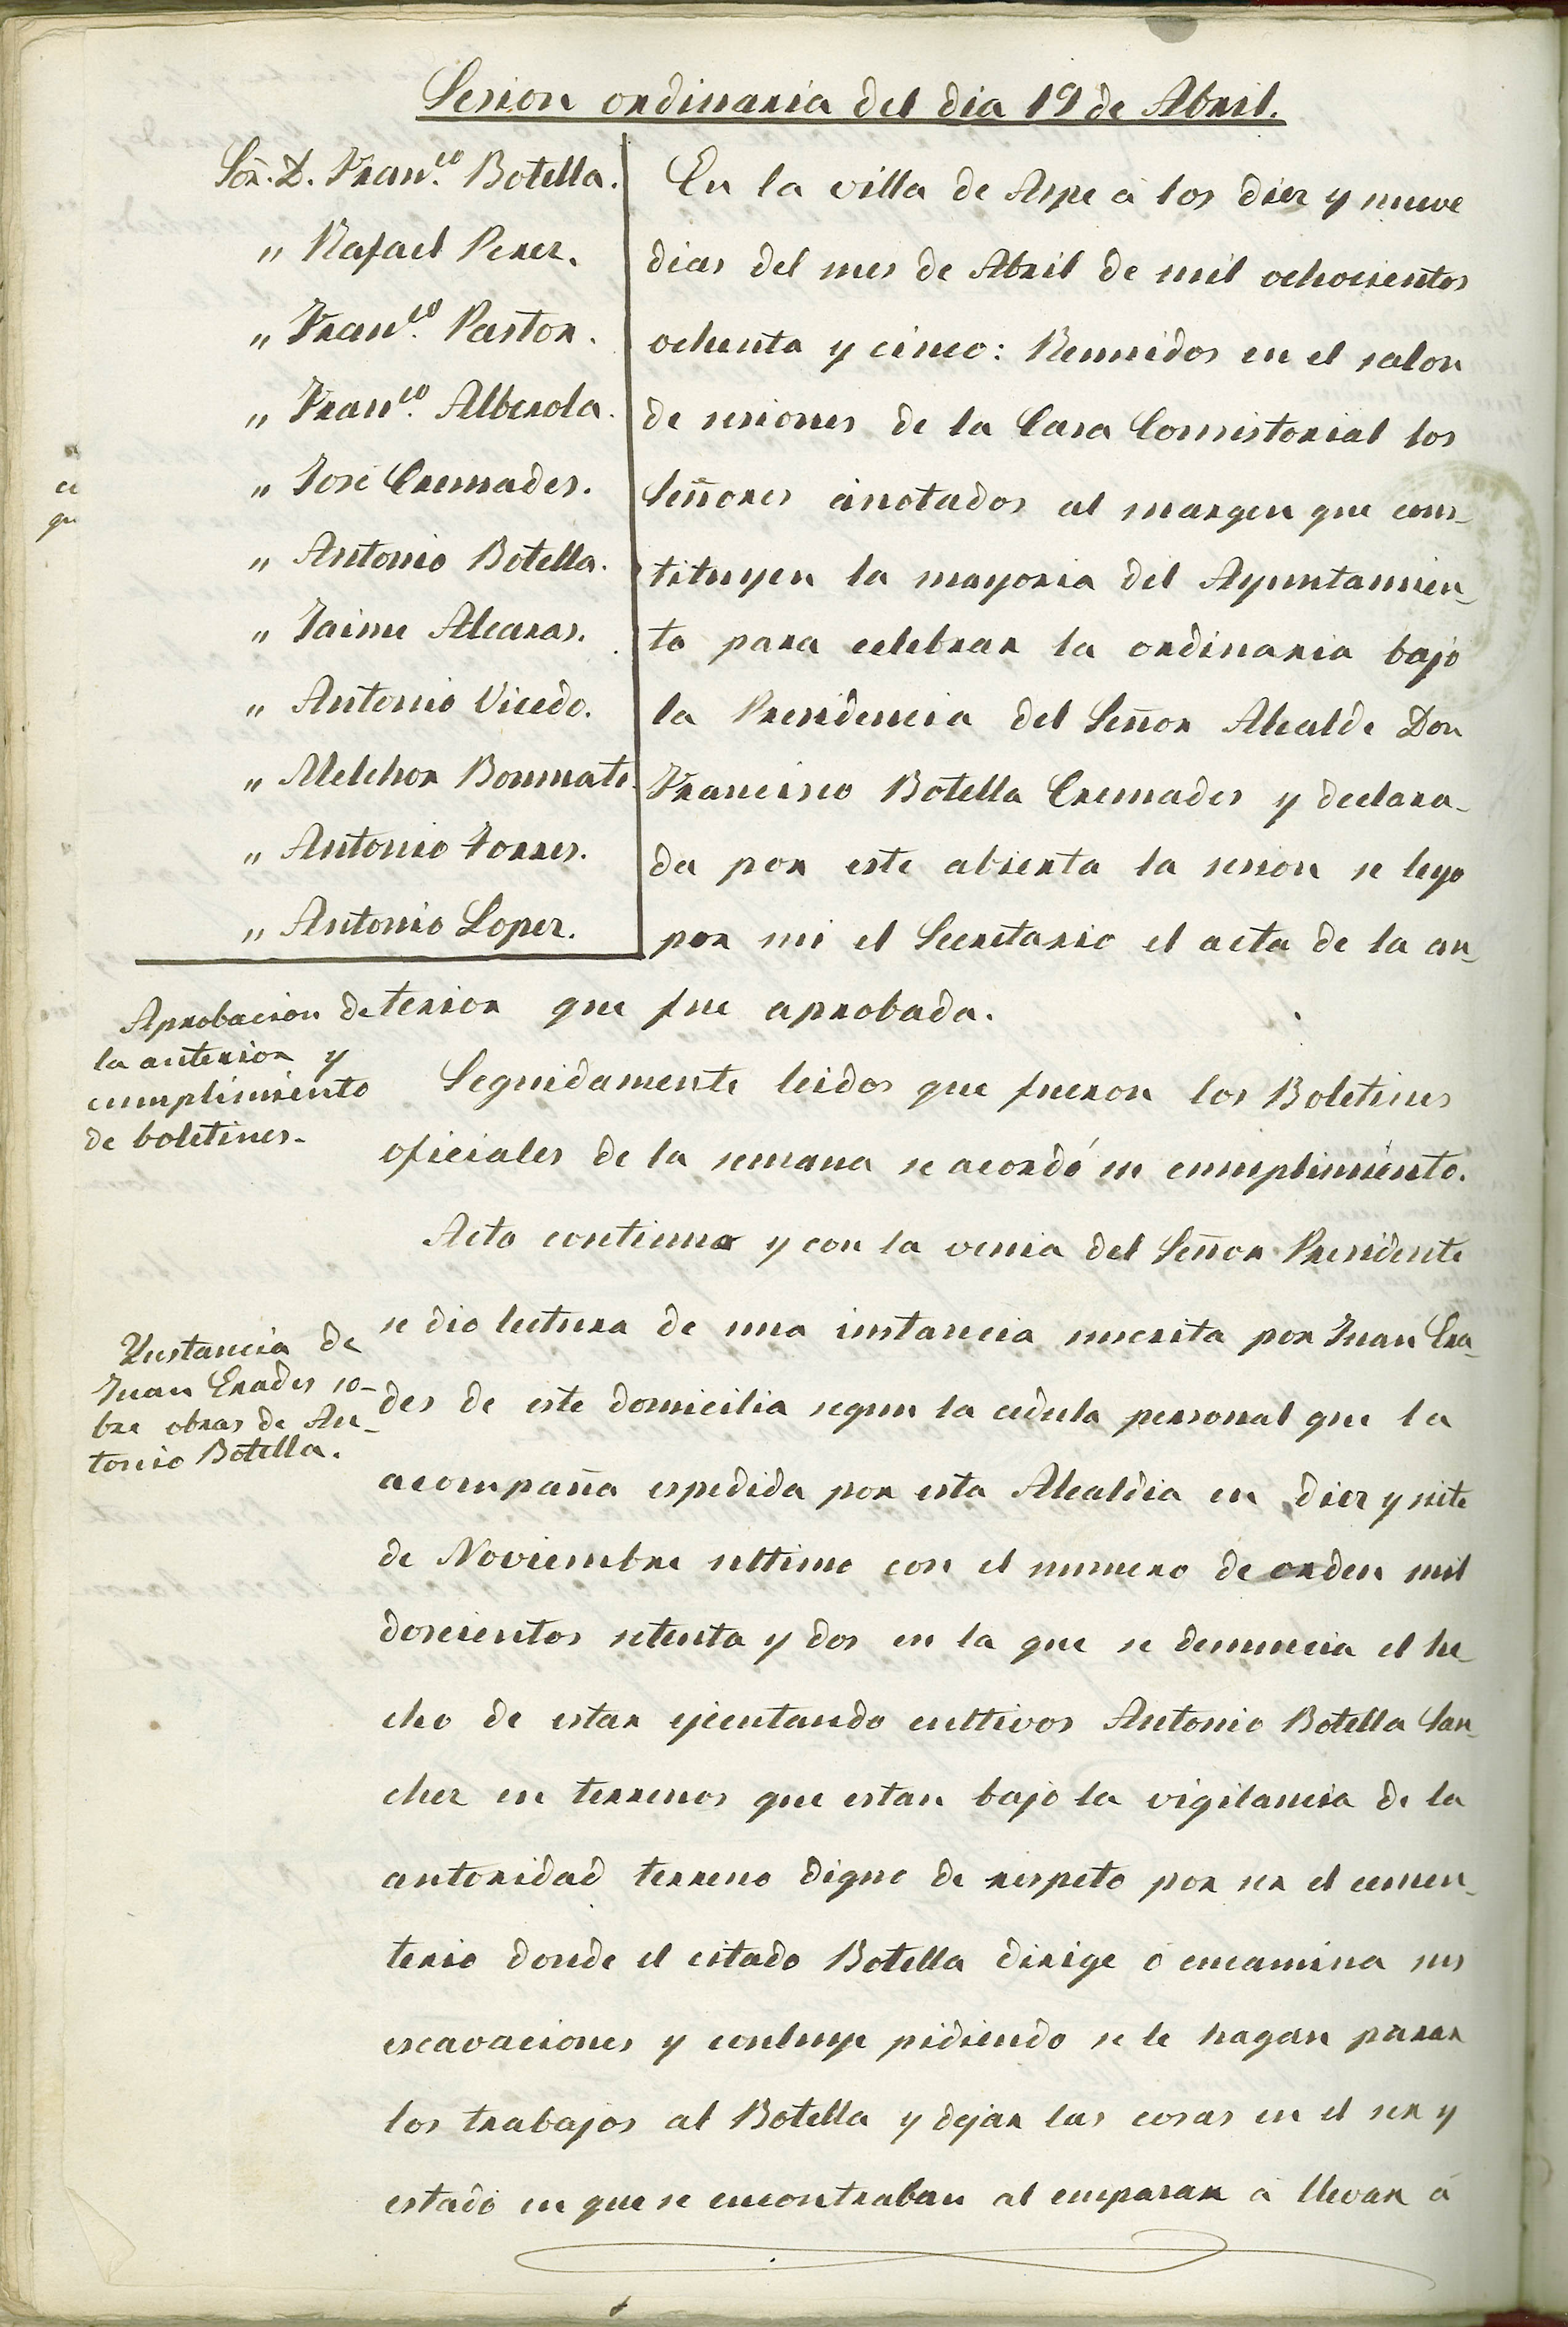 Sesion ordinaria del dia 19 de Abril.
Sor. D. Franco. Botella.
" Rafael Perez.
" Franco. Pastor.
" Franco. Alberola.
" José Cremades.
" Antonio Botella.
" Jaime Alcaras.
" Antonio Vicedo.
" Melchor Bonmati.
" Antonio Torres.
" Antonio Lopez.
En la villa de Aspe á los diez y nueve
dias del mes de Abril de mil ochocientos
ochenta y cinco: Reunidos en el salon
de sesiones de la Casa Consistorial los
Señores anotados al margen que cons-
tituyen la mayoria del Ayuntamien-
to para celebrar la ordinaria bajo
la Presidencia del Señor Alcalde Don
Francisco Botella Cremades y declara-
da por este abierta la sesion se leyo
por mi el Secretario el acta de la an-
terior que fue aprobada.
Aprobacion de
la anterior y
cumplimiento
de boletines.
Seguidamente leidos que fueron los Boletines
oficiales de la semana se acordó su cumplimiento.
Acto continuo y con la venia del Señor Presidente
se dio lectura de una instancia suscrita por Juan Era-
des de este domicilia segun la cedula personal que la
acompaña espedida por esta Alcaldia en diez y siete
de Noviembre ultimo con el numero de orden mil
doscientos setenta y dos en la que se denuncia el he-
cho de estar ejecutando cultivos Antonio Botella San-
chez en terrenos que estan bajo la vigilancia de la
autoridad terreno digno de respeto por ser el cemen-
terio donde el citado Botella dirige ó encamina sus
escavaciones y concluye pidiendo se le hagan parar
los trabajos al Botella y dejar las cosas en el ser y
estado en que se encontraban al empasar á llevar á
Instancia de
Juan Erades so-
bre obras de An-
tonio Botella.